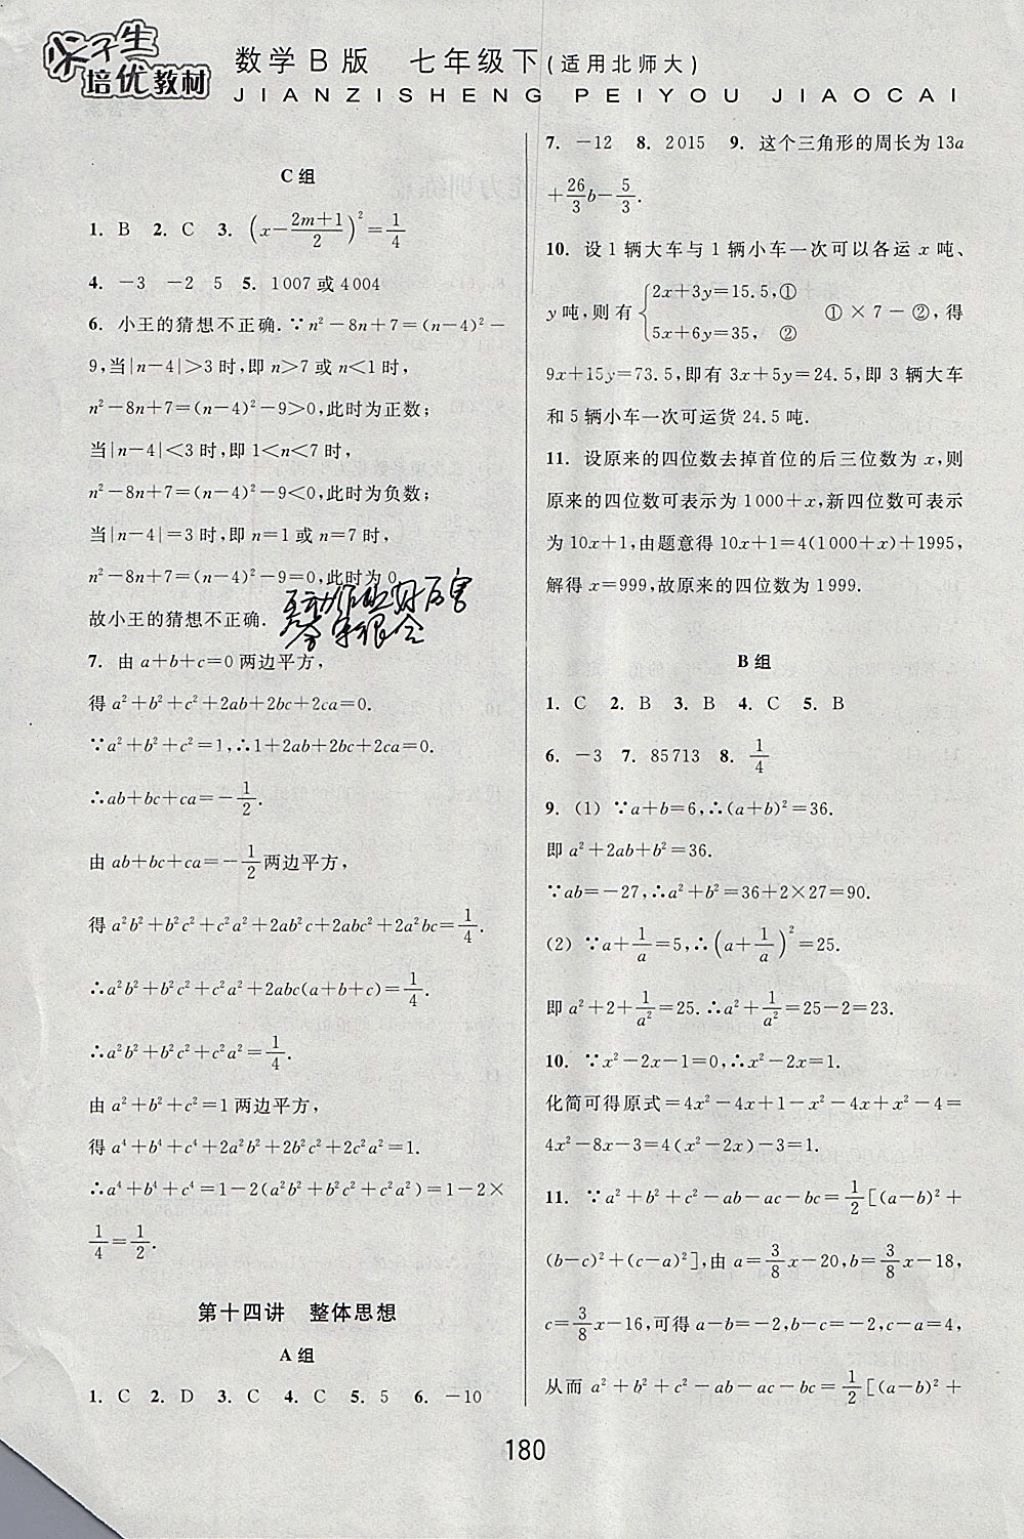 尖子生
培优教材
数学B版 七年级下(适用北师大)
JIANZISHENG PEIYOU JIAOCAI
C组
1. B 2. C 3. (x-\frac{2m+1}{2})²=\frac{1}{4}
4. -3 -2 5 5. 1007或4004
6. 小王的猜想不正确.∵n²-8n+7=(n-4)²-
9,当|n-4|>3时,即n>7或n<1时,
n²-8n+7=(n-4)²-9>0,此时为正数;
当|n-4|<3时,即1<n<7时,
n²-8n+7=(n-4)²-9<0,此时为负数;
当|n-4|=3时,即n=1或n=7时,
n²-8n+7=(n-4)²-9=0,此时为0.
故小王的猜想不正确.
7. 由a+b+c=0两边平方,
得a²+b²+c²+2ab+2bc+2ca=0.
∵a²+b²+c²=1,∴1+2ab+2bc+2ca=0.
∴ab+bc+ca=-\frac{1}{2}.
由ab+bc+ca=-\frac{1}{2}两边平方,
得a²b²+b²c²+c²a²+2ab²c+2abc²+2a²bc=\frac{1}{4}.
∴a²b²+b²c²+c²a²+2abc(a+b+c)=\frac{1}{4}.
∴a²b²+b²c²+c²a²=\frac{1}{4}.
由a²+b²+c²=1两边平方,
得a⁴+b⁴+c⁴+2a²b²+2b²c²+2c²a²=1.
∴a⁴+b⁴+c⁴=1-2(a²b²+b²c²+c²a²)=1-2×
\frac{1}{4}=\frac{1}{2}.
第十四讲 整体思想
A组
1. C 2. D 3. C 4. C 5. 5 6. -10
7. -12 8. 2015 9. 这个三角形的周长为13a
+\frac{26}{3}b-\frac{5}{3}.
10. 设1辆大车与1辆小车一次可以各运x吨、
y吨,则有{2x+3y=15.5,① 5x+6y=35, ② ①×7-②,得
9x+15y=73.5,即有3x+5y=24.5,即3辆大车
和5辆小车一次可运货24.5吨.
11. 设原来的四位数去掉首位的后三位数为x,则
原来的四位数可表示为1000+x,新四位数可表示
为10x+1,由题意得10x+1=4(1000+x)+1995,
解得x=999,故原来的四位数为1999.
B组
1. C 2. B 3. B 4. C 5. B
6. -3 7. 85713 8. \frac{1}{4}
9. (1) ∵a+b=6,∴(a+b)²=36.
即a²+2ab+b²=36.
∵ab=-27,∴a²+b²=36+2×27=90.
(2) ∵a+\frac{1}{a}=5,∴(a+\frac{1}{a})²=25.
即a²+2+\frac{1}{a²}=25.∴a²+\frac{1}{a²}=25-2=23.
10. ∵x²-2x-1=0,∴x²-2x=1.
化简可得原式=4x²-4x+1-x²-4x+x²-4=
4x²-8x-3=4(x²-2x)-3=1.
11. ∵a²+b²+c²-ab-ac-bc=\frac{1}{2}[(a-b)²+
(b-c)²+(c-a)²],由a=\frac{3}{8}x-20,b=\frac{3}{8}x-18,
c=\frac{3}{8}x-16,可得a-b=-2,b-c=-2,c-a=4,
从而a²+b²+c²-ab-ac-bc=\frac{1}{2}[(a-b)²+
180